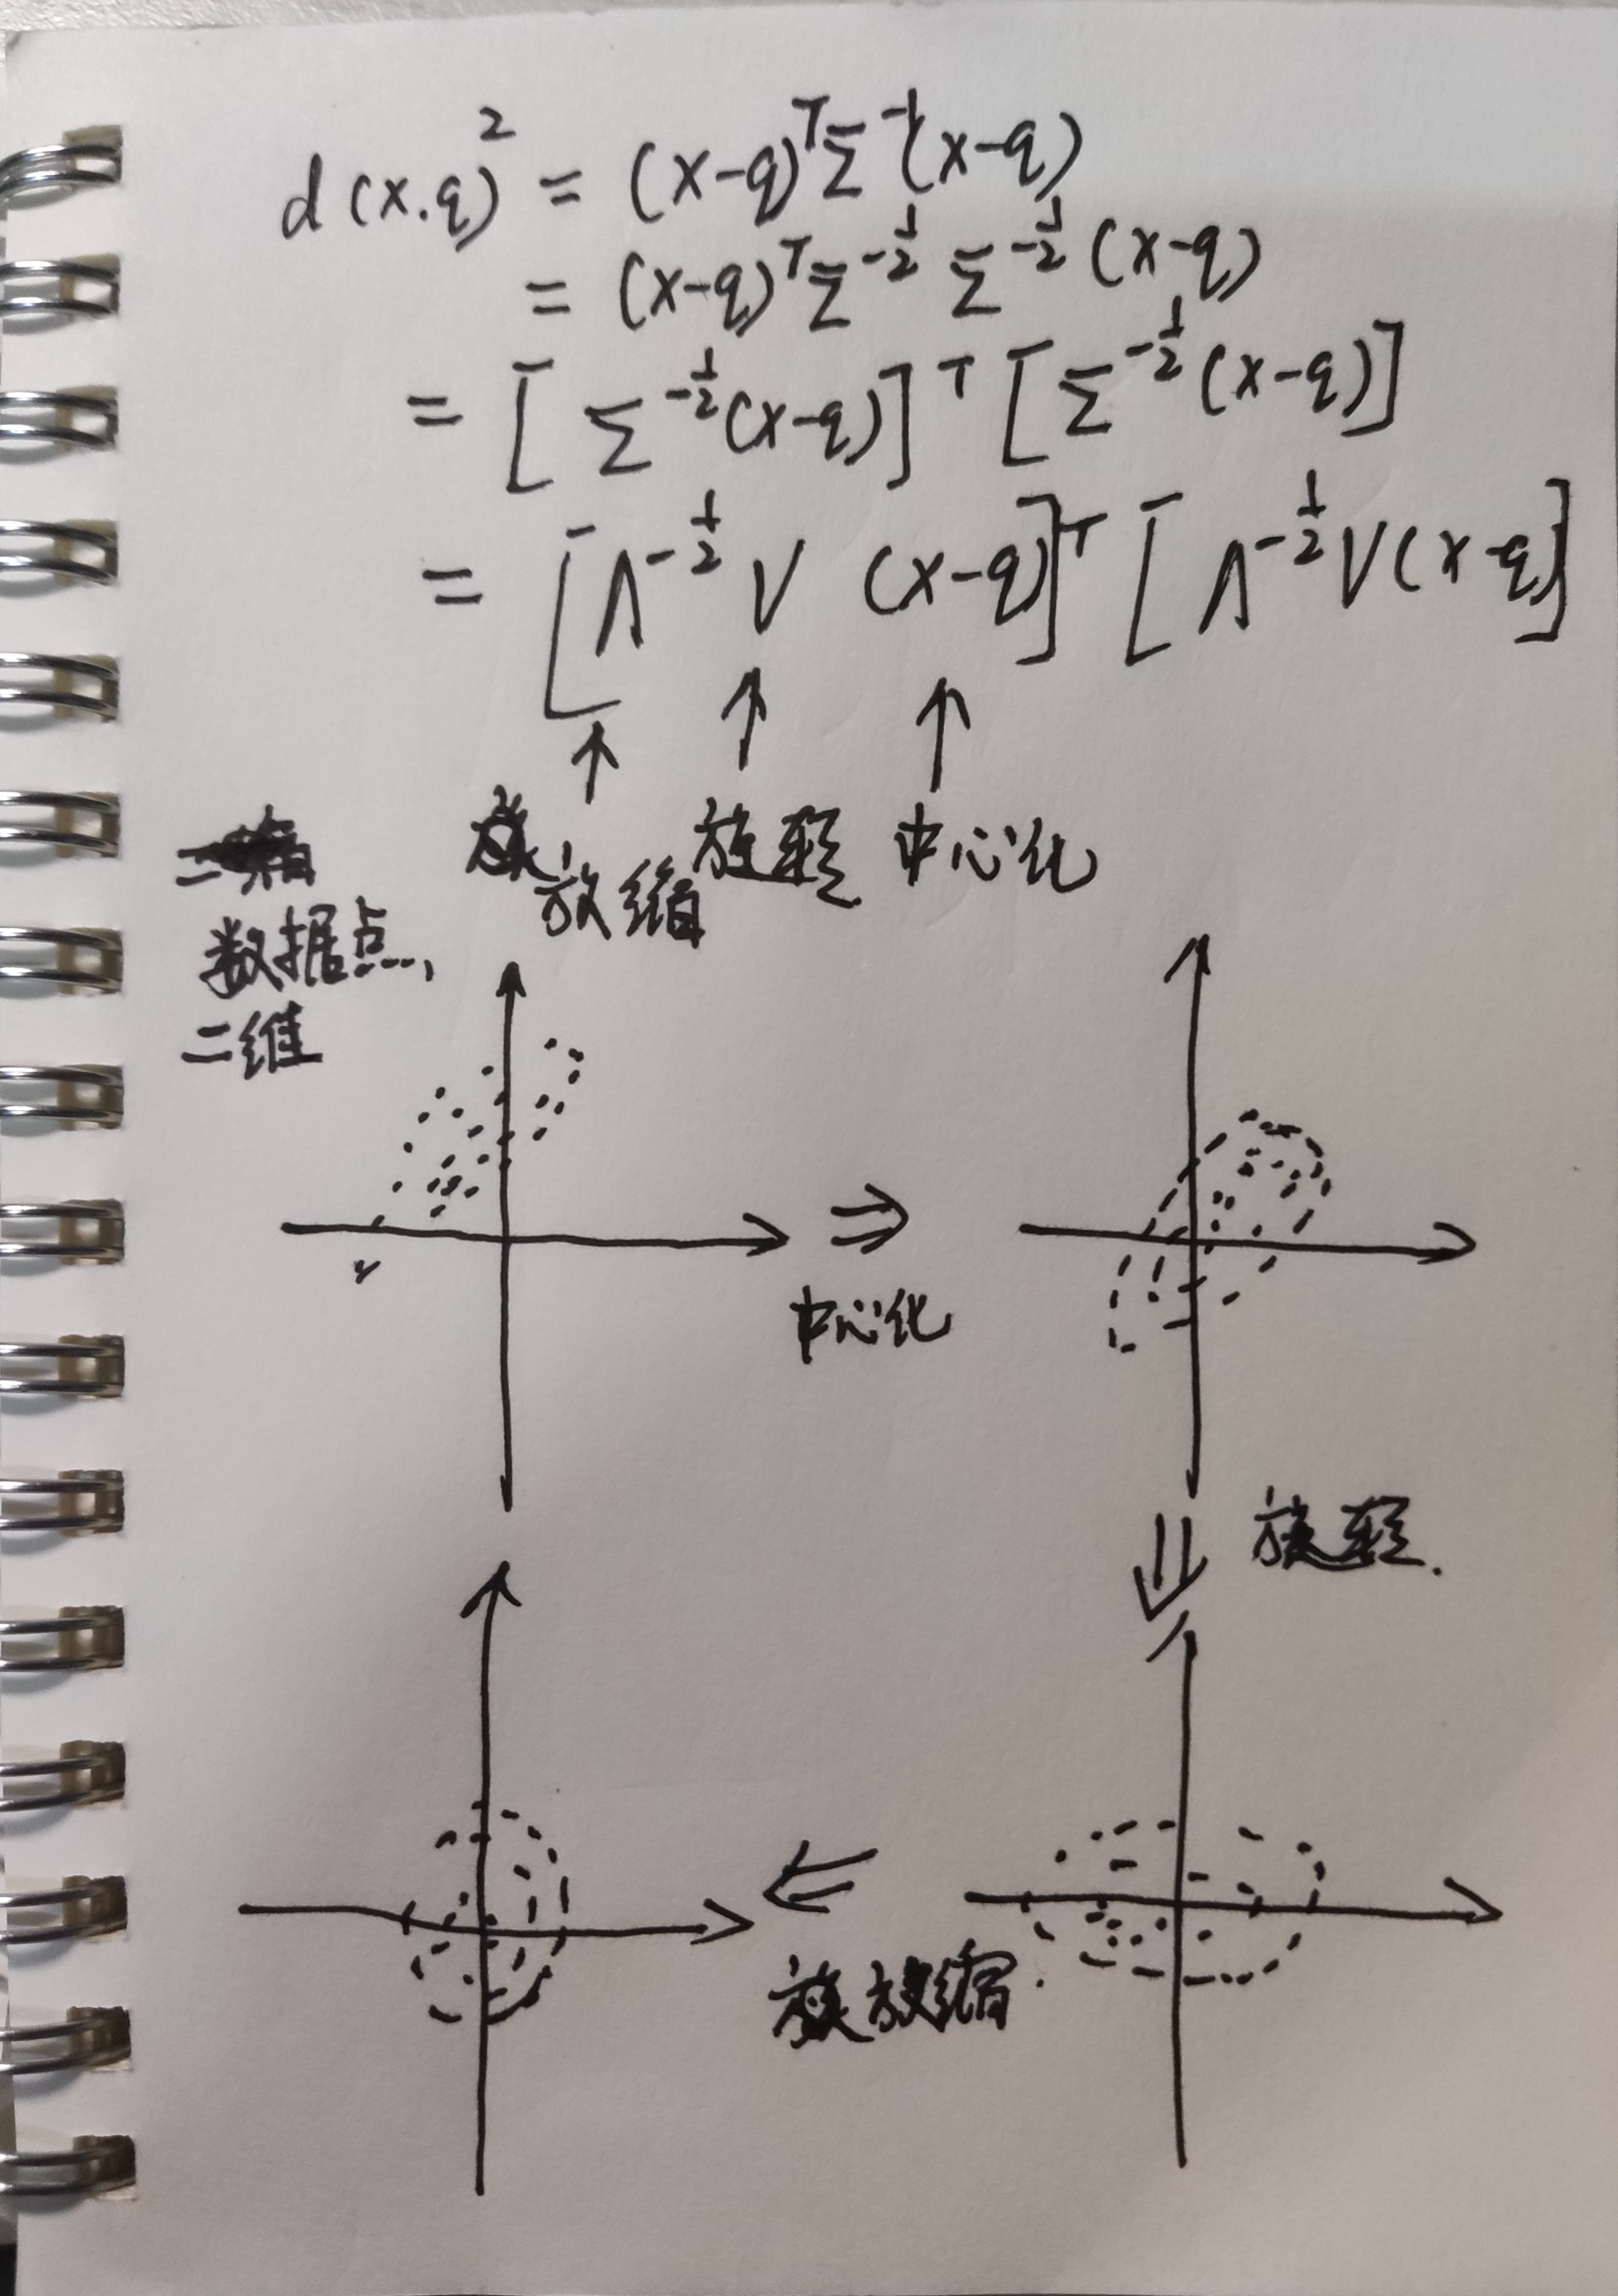 d(x.q)² = (x-q)ᵀΣ⁻¹(x-q)
= (x-q)ᵀΣ^{-1/2} Σ^{-1/2} (x-q)
= [Σ^{-1/2}(x-q)]ᵀ [Σ^{-1/2}(x-q)]
= [Λ^{-1/2} V (x-q)]ᵀ [Λ^{-1/2} V(x-q)]
放缩 旋转 中心化
数据点,
二维
中心化
旋转.
放缩.